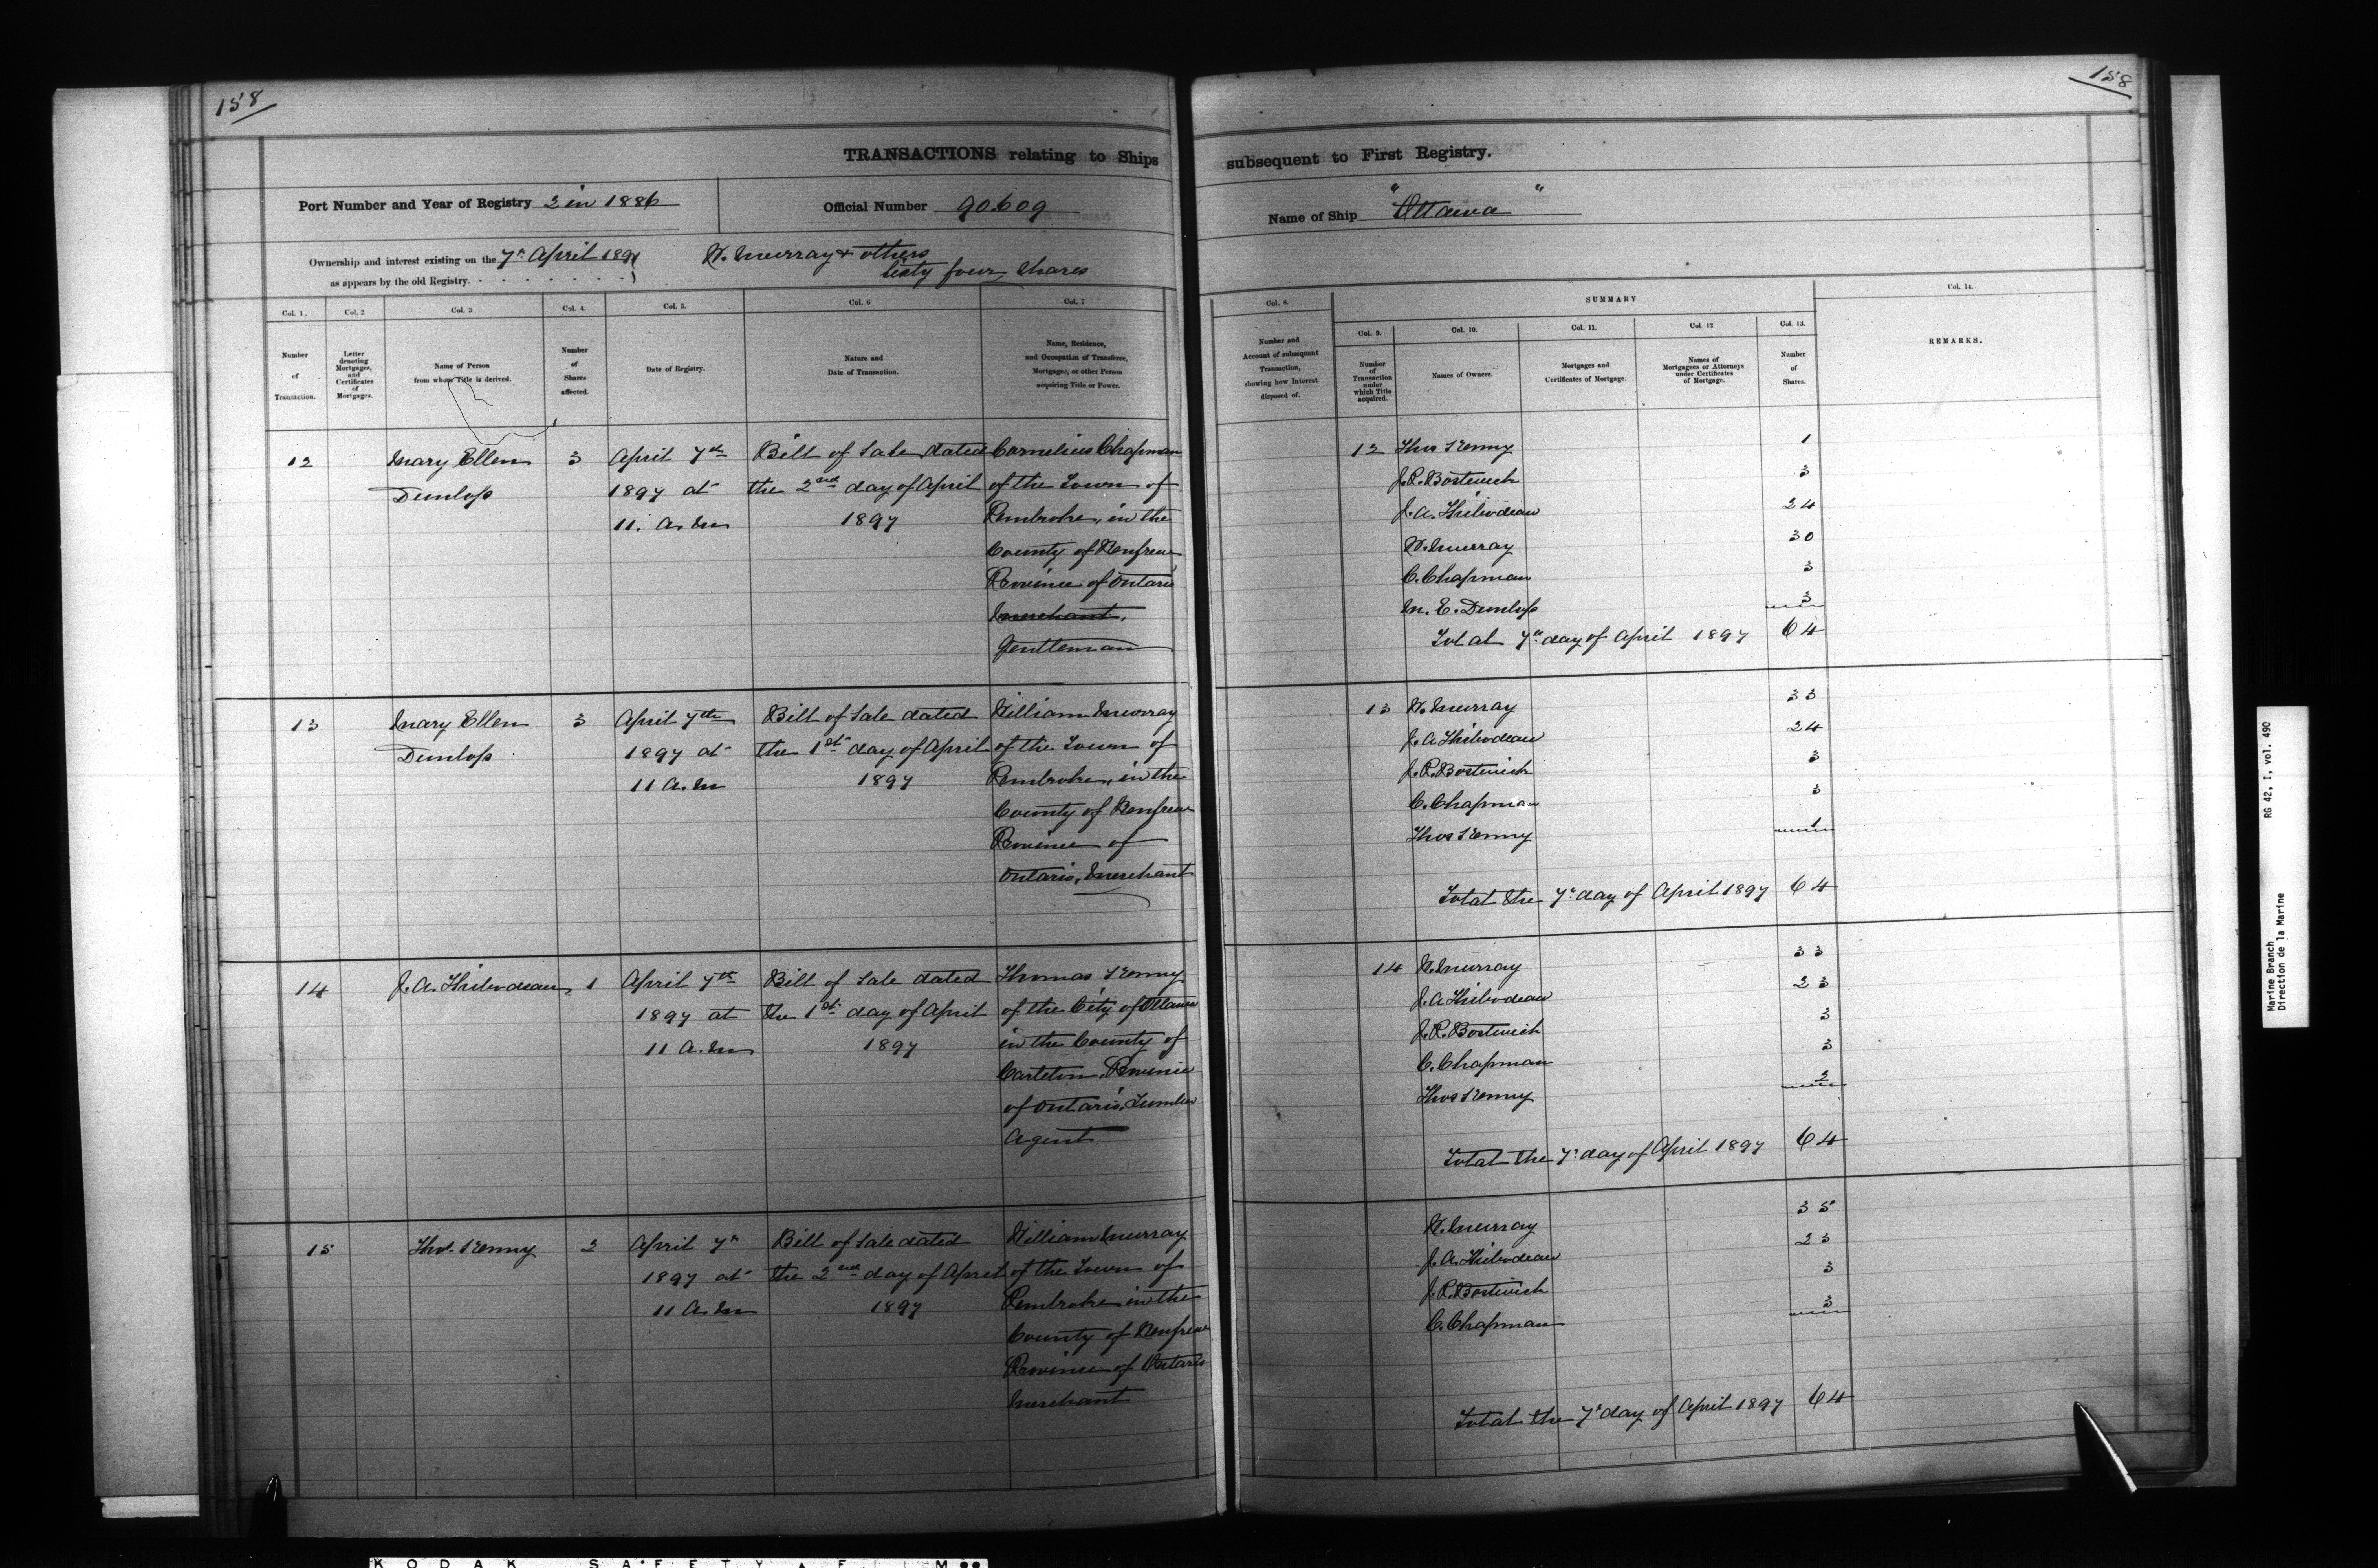 158
158
TRANSACTIONS relating to Ships subsequent to First Registry.
Port Number and Year of Registry 2 in 1886
Official Number 90609
Name of Ship "Ottawa"
Ownership and interest existing on the 7th April 1897
as appears by the old Registry.
W. Murray & others
Sixty four shares
Col. 1.
Number
of
Transaction.
Col. 2
Letter
denoting
Mortgages,
and
Certificates
of
Mortgages.
Col. 3
Name of Person
from whom Title is derived.
Col. 4.
Number
of
Shares
affected.
Col. 5.
Date of Registry.
Col. 6
Nature and
Date of Transaction.
Col. 7
Name, Residence,
and Occupation of Transferee,
Mortgagee, or other Person
acquiring Title or Power.
Col. 8.
Number and
Account of subsequent
Transaction,
showing how Interest
disposed of.
SUMMARY
Col. 9.
Number
of
Transaction
under
which Title
acquired.
Col. 10.
Names of Owners.
Col. 11.
Mortgages and
Certificates of Mortgage.
Col. 12
Names of
Mortgagees or Attorneys
under Certificates
of Mortgage.
Col. 13.
Number
of
Shares.
Col. 14.
REMARKS.
12
Mary Ellen
Dunlop
3
April 7th
1897 at
11. A.M
Bill of Sale dated
the 2nd day of April
1897
Cornelius Chapman
of the Town of
Pembroke, in the
County of Renfrew
Province of Ontario
Merchant,
Gentleman
12 Thos Kenny 1
J.R. Bostwick 3
J.A. Thibodeau 24
W. Murray 30
C. Chapman 3
M. E. Dunlop 3
Total 7th day of April 1897 64
13
Mary Ellen
Dunlop
3
April 7th
1897 at
11 A.M
Bill of Sale dated
the 1st day of April
1897
William Murray
of the Town of
Pembroke, in the
County of Renfrew
Province of
Ontario, Merchant
13 W. Murray 33
J.A Thibodeau 24
J.R. Bostwick 3
C. Chapman 3
Thos Kenny 1
Total the 7th day of April 1897 64
14
J.A. Thibodeau
1
April 7th
1897 at
11 A.M
Bill of Sale dated
the 1st day of April
1897
Thomas Kenny
of the City of Ottawa
in the County of
Carleton, Province
of Ontario, Lumber
Agent
14 W. Murray 33
J.A Thibodeau 23
J.R. Bostwick 3
C. Chapman 3
Thos Kenny 2
Total the 7th day of April 1897 64
15
Thos. Kenny
2
April 7th
1897 at
11 A.M
Bill of Sale dated
the 2nd day of April
1897
William Murray
of the Town of
Pembroke in the
County of Renfrew
Province of Ontario
Merchant
W. Murray 35
J.A. Thibodeau 23
J.R. Bostwick 3
C. Chapman 3
Total the 7th day of April 1897 64
Marine Branch RG 42, I, vol. 490
Direction de la Marine
KODAK SAFETY